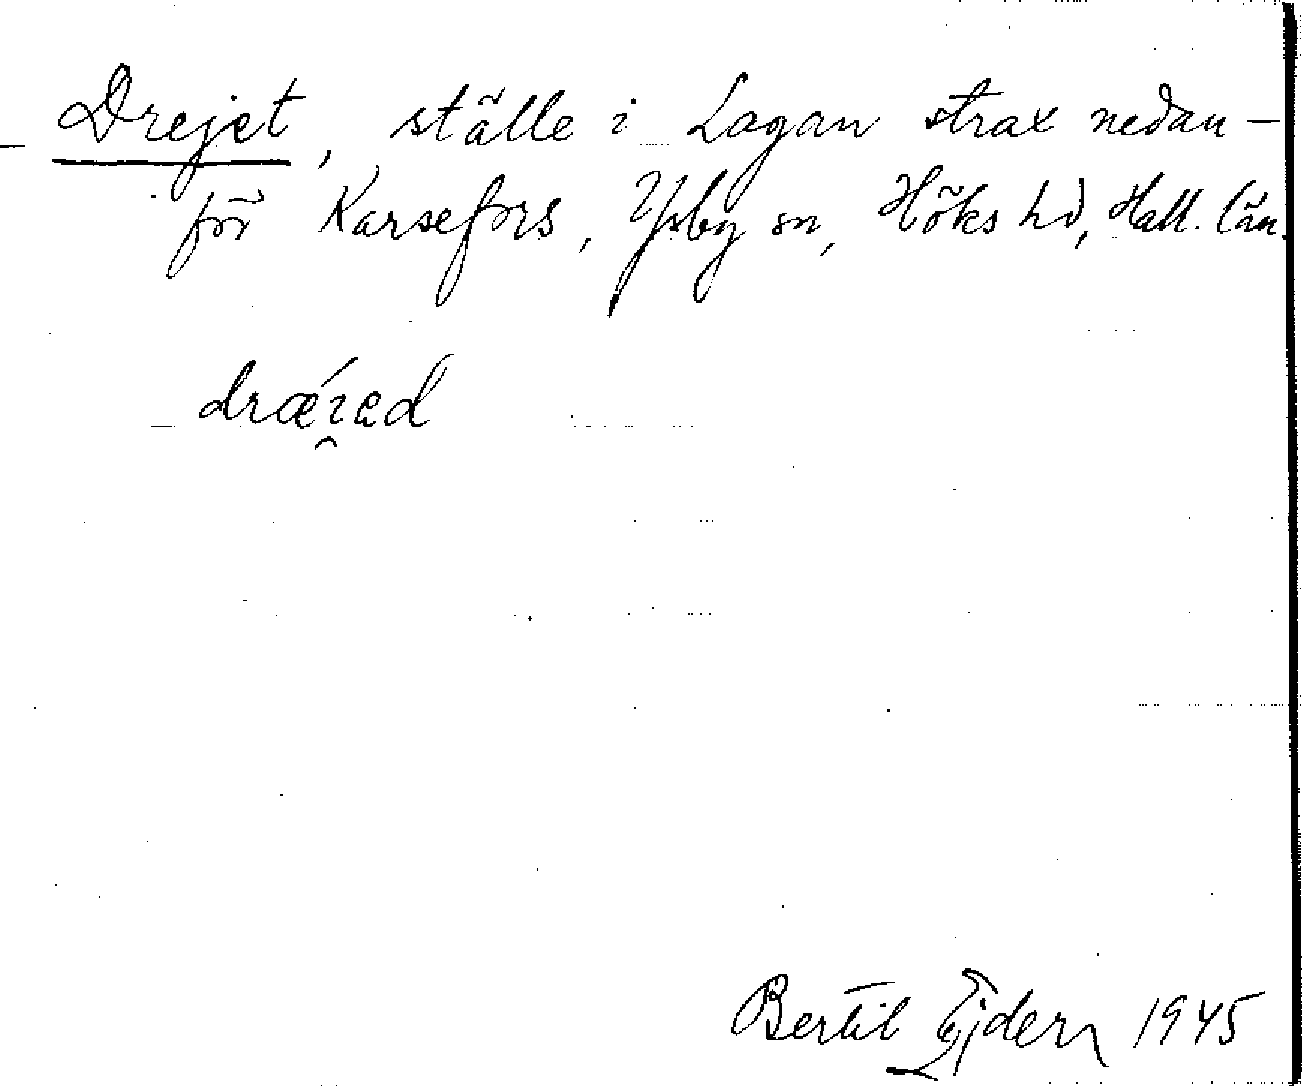 Drejet, ställe i Lagan strax nedan-
för Karsefors, Ysby sn, Höks hd, Hall. län.
drǽi̯ed
Bertil Ejder 1945